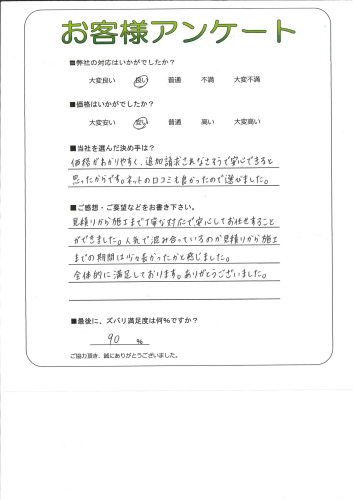 お客様アンケート
■弊社の対応はいかがでしたか?
大変良い 良い 普通 不満 大変不満
■価格はいかがでしたか?
大変安い 安い 普通 高い 大変高い
■当社を選んだ決め手は?
価格がわかりやすく、追加請求されなさそうで安心できると
思ったからです。ネットの口コミも良かったので選びました。
■ご感想・ご要望などをお書き下さい。
見積りから施工まで丁寧な対応で、安心してお任せすること
ができました。人気で混み合っているのか見積りから施工
までの期間は少々長かったかと感じました。
全体的に満足しております。ありがとうございました。
■最後に、ズバリ満足度は何%ですか?
90 %
ご協力頂き、誠にありがとうございました。